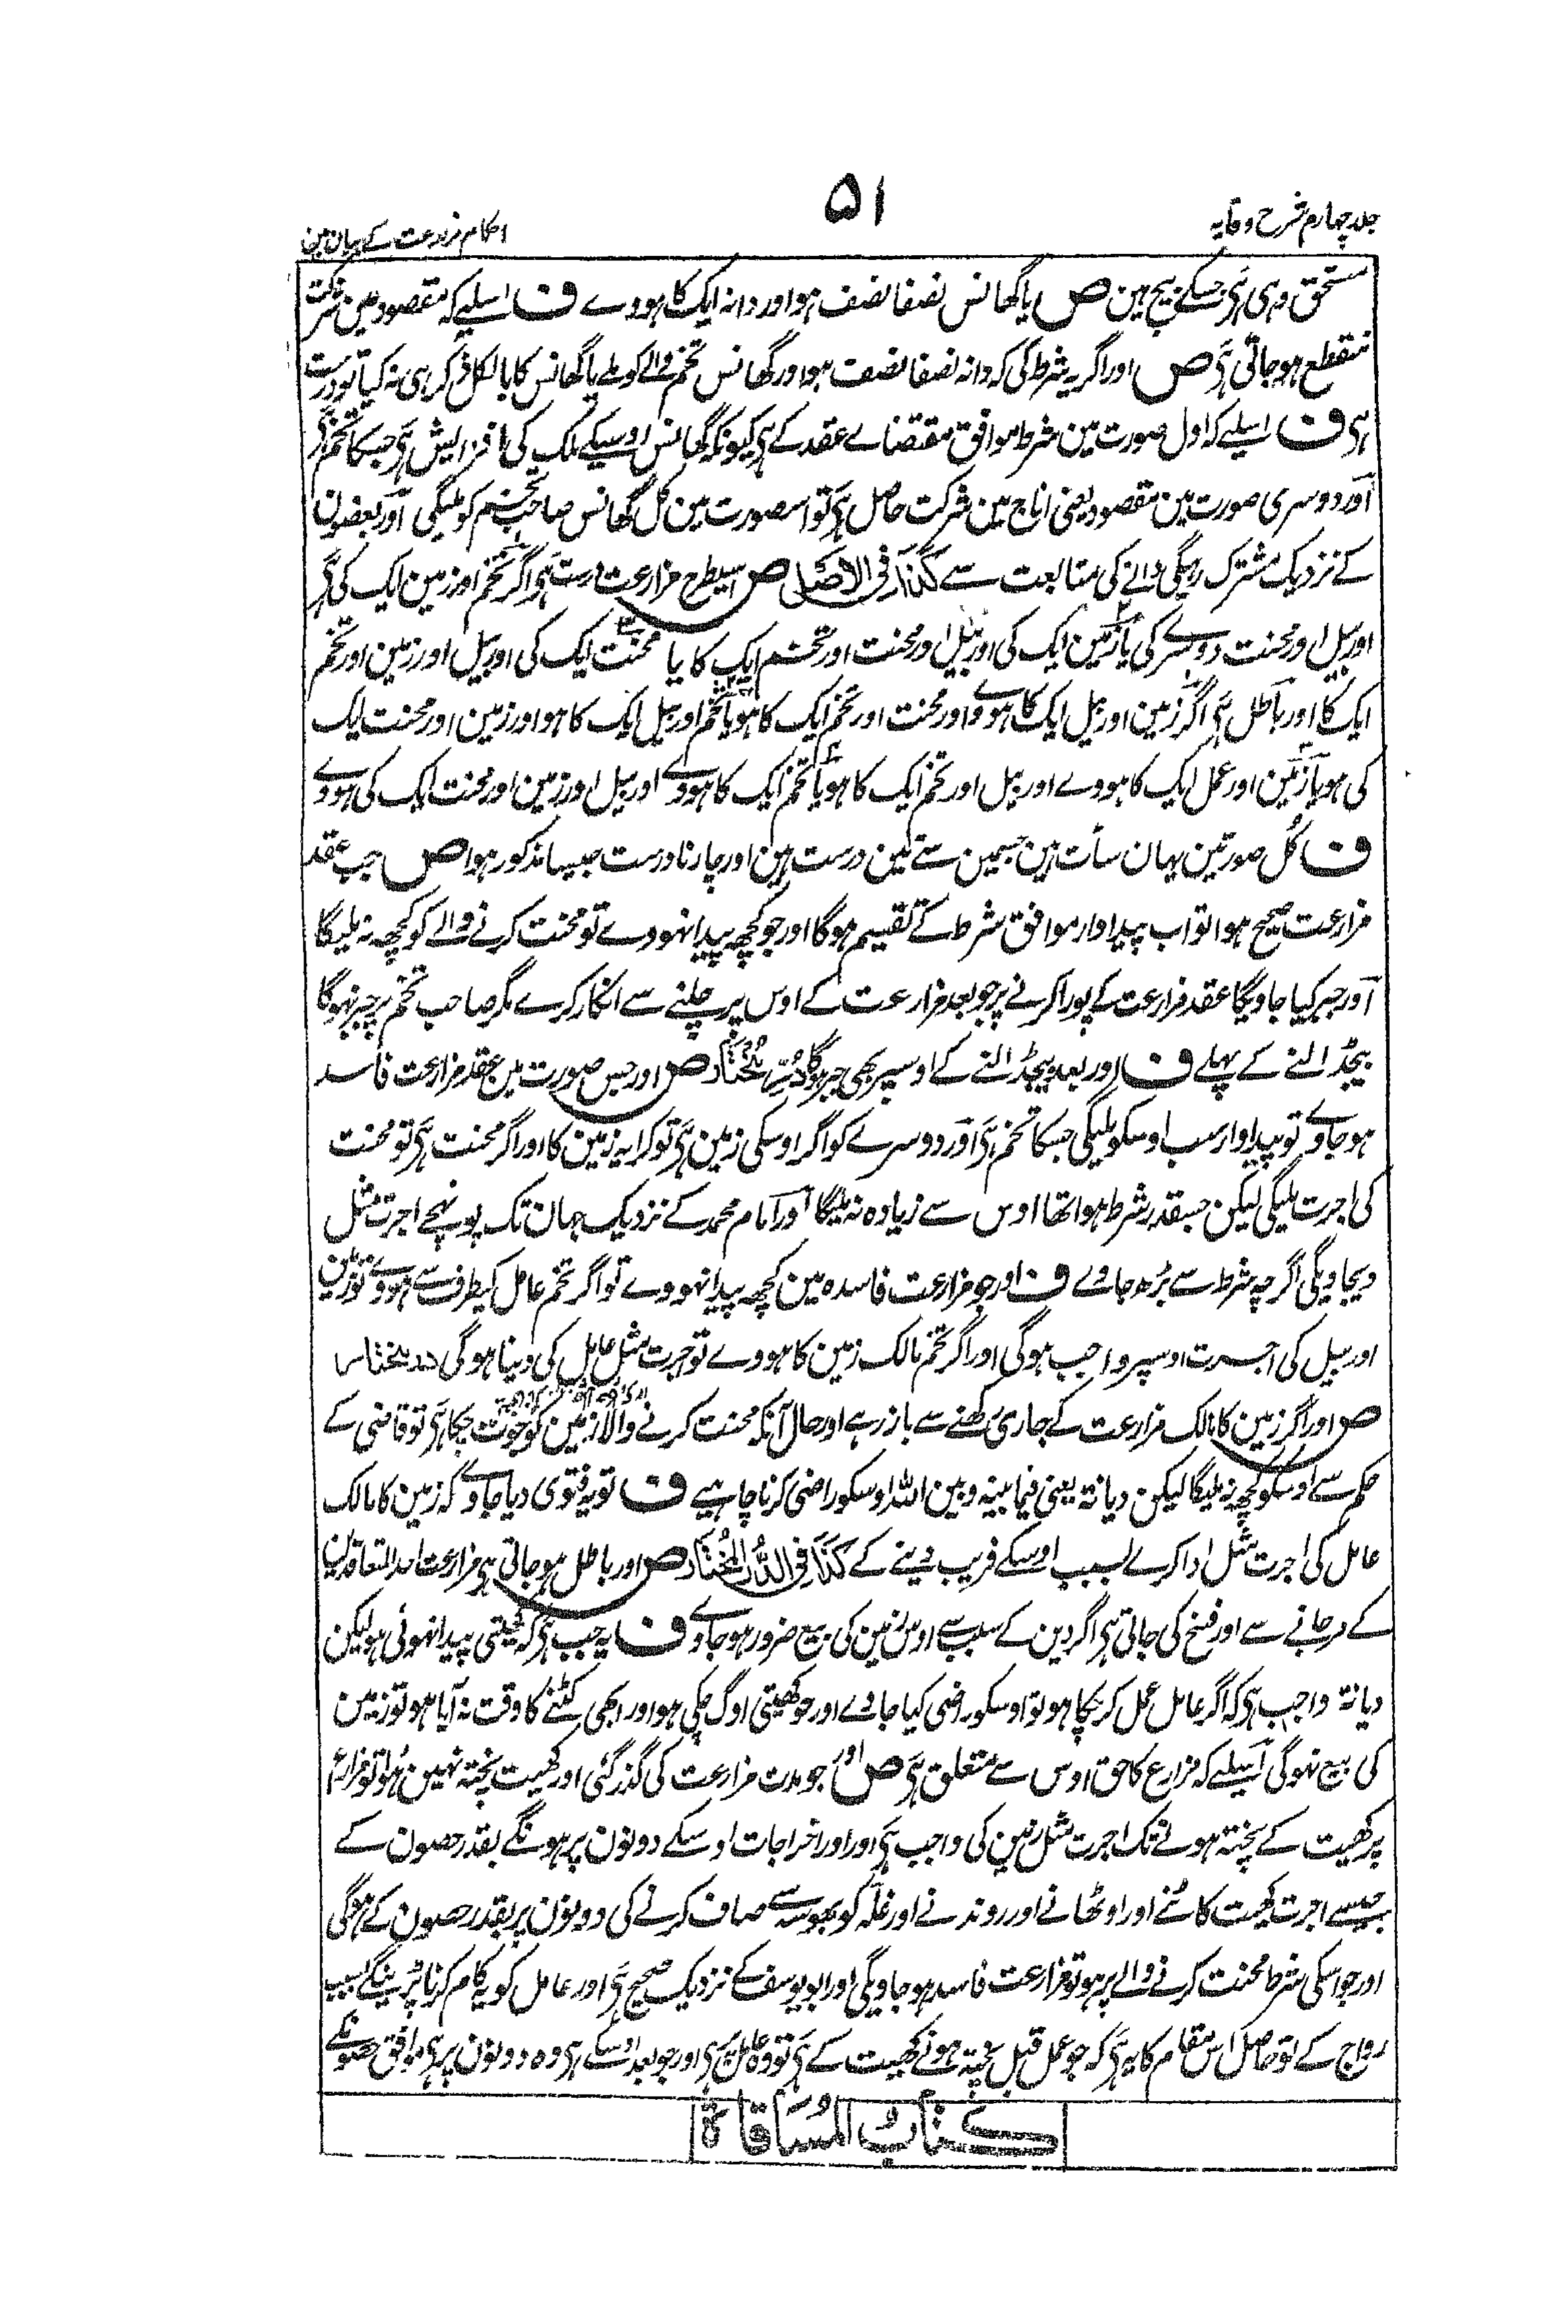 جلد چہارم شرح وقایہ
۵۱
احکام مزارعت کے بیان مین
مستحق وہی ہی جسکے بیج ہین ص یا گھانس نصفا نصف ہو اور دانہ ایک کا ہووے ف اسلیے کہ مقصود مین شرکت
منقطع ہو جاتی ہی ص اور اگر یہ شرط کی کہ دانہ نصفا نصف ہو اور گھانس تخم والے کو ملے یا گھانس کا بالکل ذکر ہی نہ کیا تو درست
ہی ف اسلیے کہ اول صورت مین شرط موافق مقتضاے عقد کے ہی کیونکہ گھانس اوسیکے ملک کی افزایش ہی جسکا تخم ہی
اور دوسری صورت مین مقصود یعنی اناج مین شرکت حاصل ہی تو اسصورت مین کل گھانس صاحب تخم کو ملیگی اور بعضون
کے نزدیک مشترک رہیگی دانے کی متابعت سے کذا فی الاصل ص اسیطرح مزارعت درست ہی اگر تخم اور زمین ایک کی ہی
اور بیل اور محنت دوسرے کی یا زمین ایک کی اور بیل اور محنت اور تخم ایک کا یا محنت ایک کی اور بیل اور زمین اور تخم
ایک کا اور باطل ہی اگر زمین اور بیل ایک کا ہووے اور محنت اور تخم ایک کا ہو یا تخم اور بیل ایک کا ہو اور زمین اور محنت ایک
کی ہو یا زمین اور عمل ایک کا ہووے اور بیل اور تخم ایک کا ہو یا تخم ایک کا ہووے اور بیل اور زمین اور محنت ایک کی ہووے
ف کل صورتین یہان سات ہین جسمین سے تین درست ہین اور چار نادرست جیسا مذکور ہوا ص جب عقد
مزارعت صحیح ہوا تو اب پیداوار موافق شرط کے تقسیم ہوگا اور جو کچھ پیدا نہووے تو محنت کرنے والے کو کچھ نہ ملیگا
اور جبر کیا جاویگا عقد مزارعت کے پورا کرنے پر جو بعد مزارعت کے اوس پر چلنے سے انکار کرے مگر صاحب تخم پر جبر نہوگا
بیج ڈالنے کے پہلے ف اور بعد بیج ڈالنے کے اوسپر بھی جبر ہوگا در مختار ص اور جس صورت مین عقد مزارعت فاسد
ہو جاوے تو پیداوار سب اوسکو ملیگی جسکا تخم ہی اور دوسرے کو اگر اوسکی زمین ہی تو کرایہ زمین کا اور اگر محنت ہی تو محنت
کی اجرت ملیگی لیکن جسقدر شرط ہوا تھا اوس سے زیادہ نہ ملیگا اور امام محمد کے نزدیک جہان تک پونہچے اجرت مثل
دیجاویگی اگرچہ شرط سے بڑھ جاوے ف اور جو مزارعت فاسدہ مین کچھ پیدا نہووے تو اگر تخم عامل کیطرف سے ہووے تو زمین
اور بیل کی اجرت اوسپر واجب ہوگی اور اگر تخم مالک زمین کا ہووے تو اجرت مثل عامل کی دینا ہوگی در مختار
ص اور اگر زمین کا مالک مزارعت کے جاری رکھنے سے باز رہے اور حال آنکہ محنت کرنے والا زمین کو جوت چکا ہی تو قاضی کے
حکم سے اوسکو کچھ نہ ملیگا لیکن دیانۃ یعنی فیما بینہ و بین اللہ اوسکو راضی کرنا چاہیے ف تو یہ فتوی دیا جاوے کہ زمین کا مالک
عامل کی اجرت مثل ادا کرے بسبب اوسکے فریب دینے کے کذا فی الدر المختار ص اور باطل ہو جاتی ہی مزارعت احد المتعاقدین
کے مر جانے سے اور فسخ کی جاتی ہی اگر دین کے سبب سے اوس زمین کی بیع ضرور ہو جاوے ف یہ جب ہی کہ کھیتی پیدا نہوئی ہو لیکن
دیانۃ واجب ہی کہ اگر عامل عمل کر چکا ہو تو اوسکو راضی کیا جاوے اور جو کھیتی اوگ چکی ہو اور ابھی کٹنے کا وقت نہ آیا ہو تو زمین
کی بیع نہوگی اسلیے کہ مزارع کا حق اوس سے متعلق ہی ص اور جو مدت مزارعت کی گذر گئی اور کھیت پختہ نہین ہوا تو مزارع
پر کھیت کے پختہ ہونے تک اجرت مثل زمین کی واجب ہی اور اور اخراجات اوسکے دونون پر ہونگے بقدر حصون کے
جیسے اجرت کھیت کاٹنے اور اوٹھانے اور روندنے اور غلہ کو بھوسہ سے صاف کرنے کی دونون پر بقدر حصون کے ہوگی
اور جو اسکی شرط محنت کرنے والے پر ہو تو مزارعت فاسد ہو جاویگی اور ابو یوسف کے نزدیک صحیح ہی اور عامل کو یہ کام کرنا پڑینگے بسبب
رواج کے تو حاصل اس مقام کا یہ ہی کہ جو عمل قبل پختہ ہونے کھیت کے ہی تو وہ عامل پر ہی اور جو بعد اوسکے ہی وہ دونون پر ہی موافق حصونکے
کتاب المساقاة